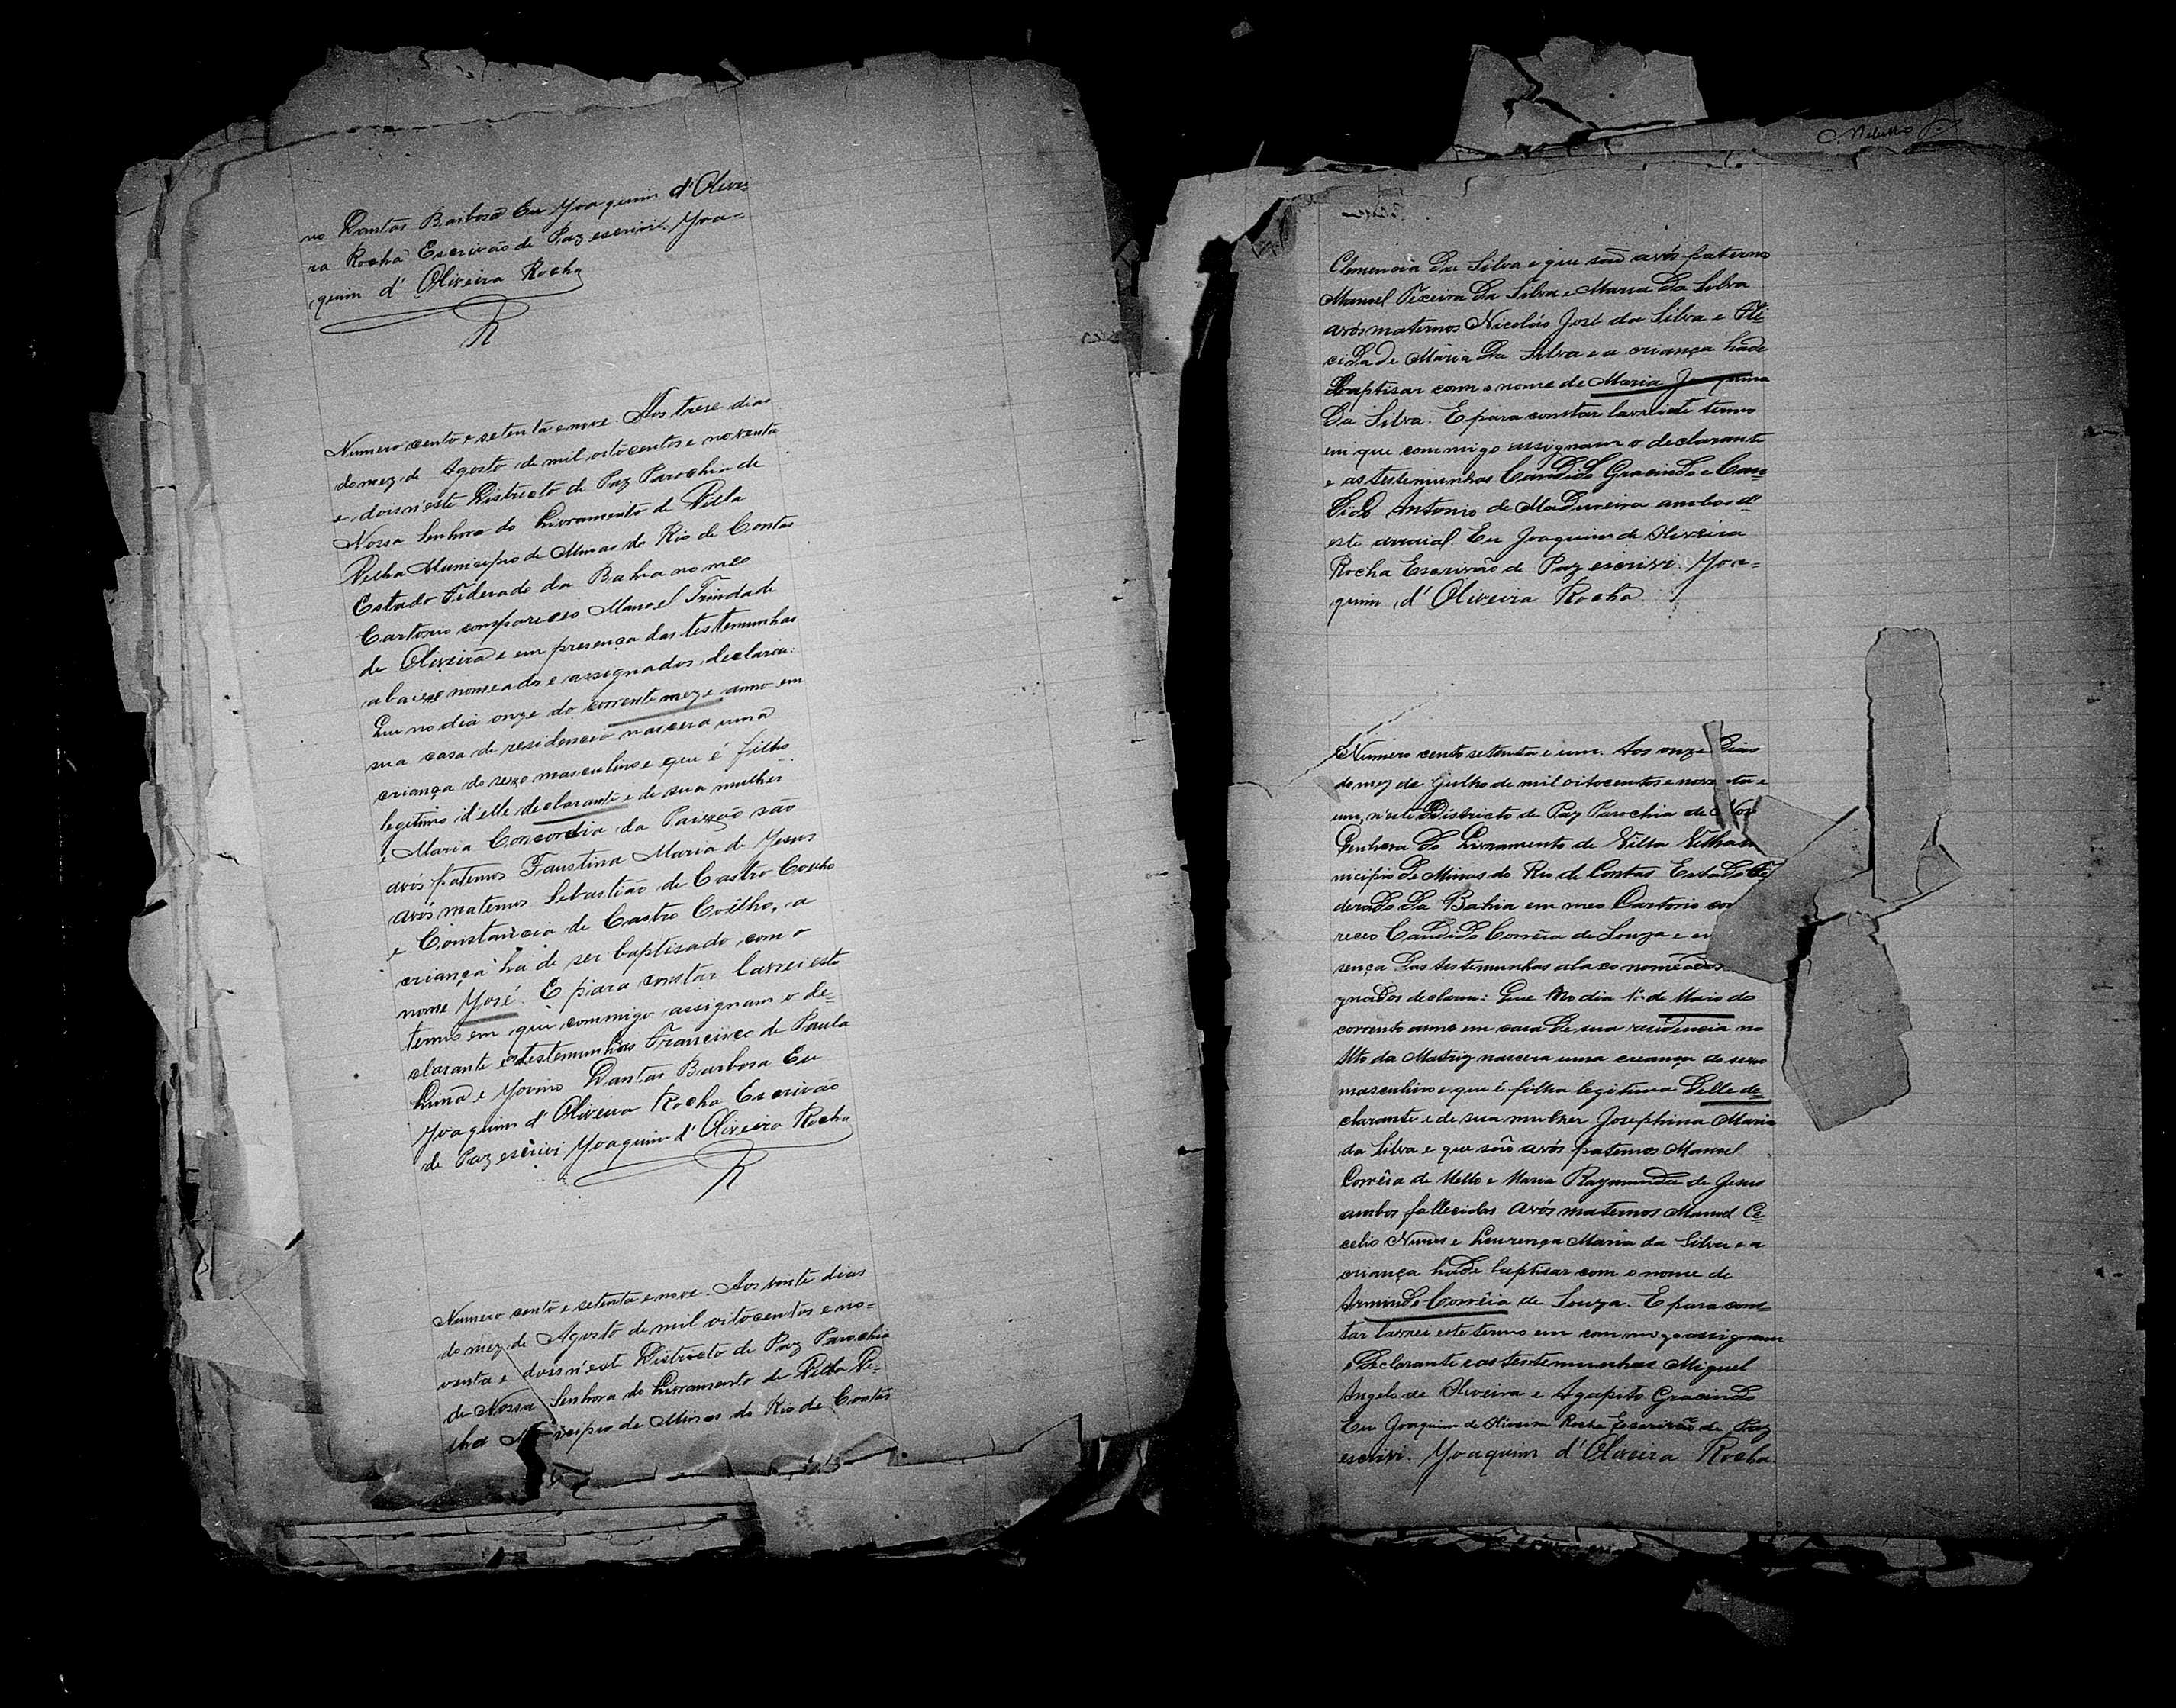 no Dantas Barbosa Eu Joaquim d'Olivei-
ra Rocha Escrivão de Paz escrivi. Joa-
quim d'Oliveira Rocha
R
Numero cento e setenta e nove. Aos trese dias
do mez de Agosto de mil oitocentos e noventa
e dois n'este Districto de Paz Parochia de
Nossa Senhora do Livramento de Villa
Velha Municipio de Minas do Rio de Contas
Estado Féderado da Bahia no meo
Cartorio compareceo Manoel Trindade
de Oliveira e em presença das testemunhas
abaixo nomeados e assignados, declarou:
Que no dia onze do corrente mez e anno em
sua casa de residencia nascera uma
criança do sexo masculino e que é filho
legitimo d'elle declarante e de sua mulher
e Maria Concordia da Paixão são
avós paternos Faustina Maria de Jesus
avós maternos Sebastião de Castro Coelho
e Constancia de Castro Coêlho, a
criança há de ser baptisado com o
nome José. E para constar lavrei este
termo em que commigo assignam o de-
clarante e testemunhas Francisco de Paula
Lima e Jovino Dantas Barbosa Eu
Joaquim d'Oliveira Rocha Escrivão
de Paz escrivi Joaquim d'Oliveira Rocha
R
Numero cento e setenta e nove. Aos vinte dias
do mez de Agosto de mil oitocentos e no-
venta e dois n'este Districto de Paz Parochia
de Nossa Senhora do Livramento de Villa Ve-
lha Municipio de Minas do Rio de Contas
Clemencia Da Silva e que são avós paterno
Manoel Teceira Da Silva e Maria Da Silva
avós maternos Nicoláo José da Silva e Feli-
cidade Maria Da Silva e a criança hade
baptisar com o nome de Maria Joaquina
Da Silva. E para constar lavrei este termo
em que commigo assignam o declarante
e as testemunhas Candido Gracindo e Can-
dido Antonio de Madureira ambos d'
este arraial. Eu Joaquim de Oliveira
Rocha Escrivão de Paz escrivi. Joa-
quim d'Oliveira Rocha
Numero cento setenta e um. Aos onze Dias
do mez de Julho de mil oitocentos e noventa e
um, n'este Districto de Paz Parochia de Nos
Senhora Do Livramento de Villa Velha
nicipio De Minas do Rio de Contas Estado Fe
derado Da Bahia em meo Cartorio co
receo Candido Corrêia de Souza e em
sença Das testemunhas abaxo nomeados
gnados declarou: Que no dia 1º de Maio do
corrento anno em casa De sua residencia no
Alto da Matriz nascera uma creança do sexo
masculino e que é filha legitima Delle de-
clarante e de sua mulher Josephina Maria
da Silva e que são avós paternos Manoel
Corrêia de Mello e Maria Raymunda de Jesus
ambos fallecidos avós maternos Manoel Ce-
celio Nunes e Lourença Maria da Silva e a
criança hade baptisar com o nome de
Armindo Corrêia de Souza. E para cons-
tar lavrei este termo em commigo assignam
o Declarante e as testemunhas Miguel
Angelo de Oliveira e Agapito Gracindo
Eu Joaquim de Oliveira Rocha Escrivão de Paz
escrivi. Joaquim d'Oliveira Rocha